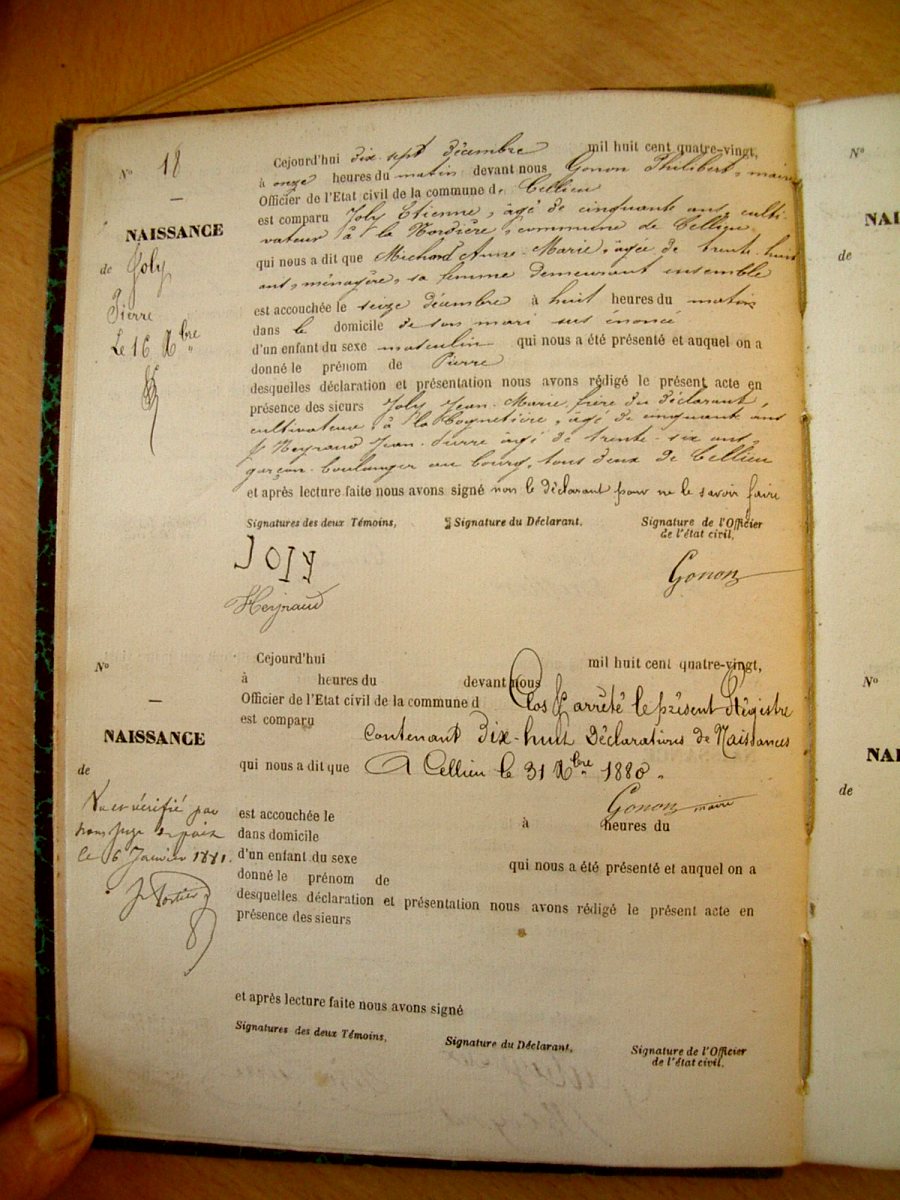 N° 18
NAISSANCE
de Joly
Pierre
Le 16 Xbre
Cejourd'hui dix-sept décembre mil huit cent quatre-vingt,
à onze heures du matin devant nous Gonon Philibert, maire
Officier de l'Etat civil de la commune d. Cellieu
est comparu Joly Etienne, âgé de cinquante ans, culti-
vateur à la Nordière, commune de Cellieu
qui nous a dit que Michard Anne-Marie, âgée de trente-huit
ans, ménagère, sa femme demeurant ensemble
est accouchée le seize décembre à huit heures du matin
dans le domicile de son mari sus énoncé
d'un enfant du sexe masculin qui nous a été présenté et auquel on a
donné le prénom de Pierre
desquelles déclaration et présentation nous avons rédigé le présent acte en
présence des sieurs Joly Jean-Marie, frère du déclarant,
cultivateur, à la âgé de cinquante ans
& Neyraud Jean-Pierre âgé de trente-six ans,
garçon-boulanger au bourg, tous deux de Cellieu
et après lecture faite nous avons signé non le déclarant pour ne le savoir faire
Signatures des deux Témoins, Signature du Déclarant. Signature de l'Officier
de l'état civil,
JOly
Neyraud
Gonon
N°
NAISSANCE
de
Vu et vérifié par
nous Juge de paix
le 6 Janvier 1881.
Cejourd'hui mil huit cent quatre-vingt,
à heures du devant nous
Officier de l'Etat civil de la commune d Clos & arrêté le présent Régistre
est comparu contenant Dix-huit Déclarations de Naissances
qui nous a dit que A Cellieu le 31 Xbre 1880.
Gonon maire
est accouchée le à heures du
dans domicile
d'un enfant du sexe qui nous a été présenté et auquel on a
donné le prénom de
desquelles déclaration et présentation nous avons rédigé le présent acte en
présence des sieurs
et après lecture faite nous avons signé
Signatures des deux Témoins, Signature du Déclarant, Signature de l'Officier
de l'état civil,
N°
NAI
de
N°
NAI
de